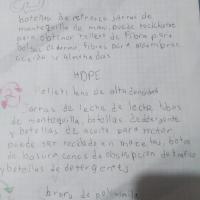 botellas de refresco jarras de
mantequilla de mani, puede reciclarse
para obtener rellero de fibra para
bolsas de dormir, fibras para alfombras
cuerda y almohadas
HDPE
polietileno de alta densidad
jarras de leche de leche, tubos
de mantequilla, botellas de detergente
y botellas de aceite para motor
puede ser reciclado en macetas, botes
de basura conos de obstrucción de trafico
y botellas de detergente